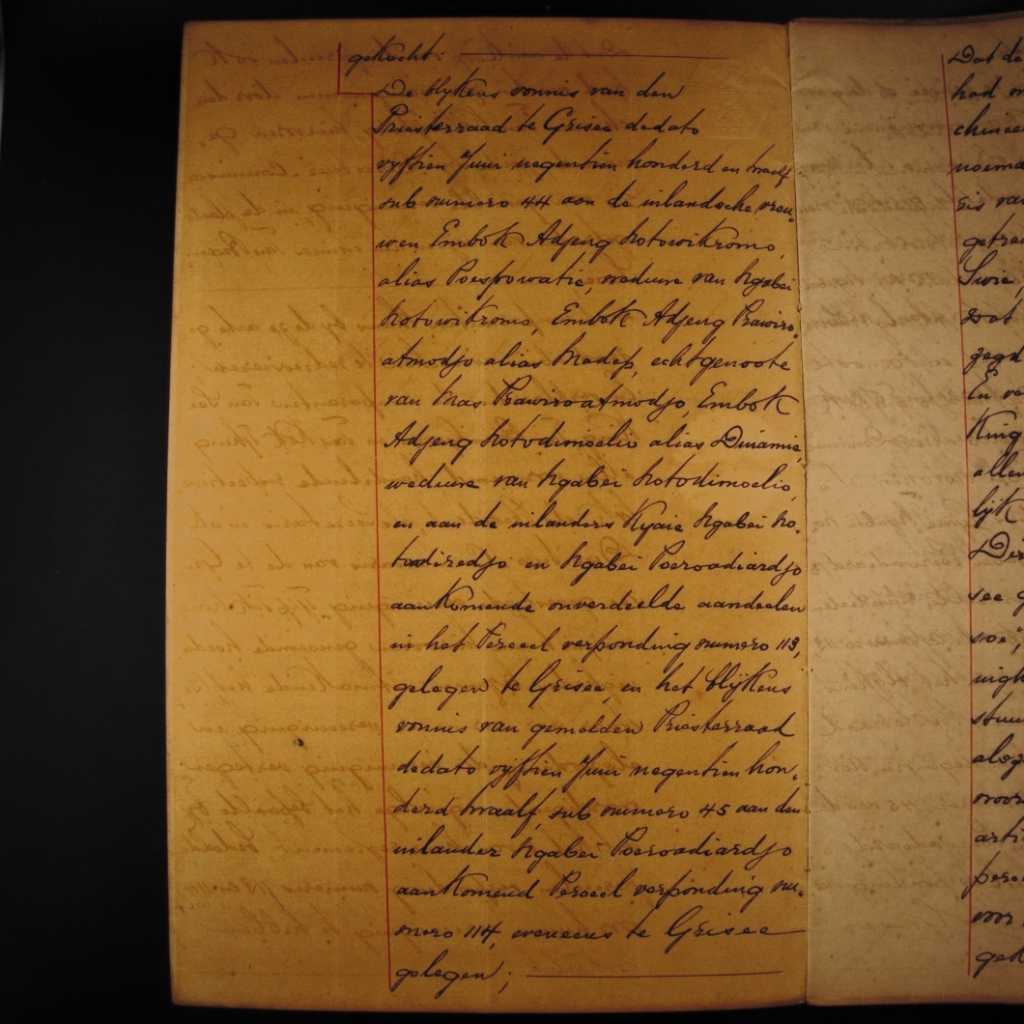 gekocht:
De blijkens vonnis van den
Priesterraad te Grisee dedato
vyftien Juni negentien honderd en twaalf
sub numero 44 aan de inlandsche vrou-
wen Embok Adjeng Notowikromo,
alias Poespowatie, weduwe van Ngabei
Notowikromo, Embok Adjeng Prawiro-
atmodjo alias Madep, echtgenoote
van Mas Prawiroatmodjo, Embok
Adjeng Notodimoelio alias Dinamie,
weduwe van Ngabei Notodimoelio,
en aan de inlanders Kyaie Ngabei No-
todiredjo en Ngabei Poeroadiardjo
aankomende onverdeelde aandeelen
in het Perceel verponding numero 113,
gelegen te Grisee, en het blijkens
vonnis van gemelden Priesterraad
dedato vyftien Juni negentien hon-
derd twaalf, sub numero 45 aan den
inlander Ngabei Poeroadiardjo
aankomend Perceel verponding nu-
mero 114, eveneens te Grisee
gelegen;
Dat de
had
chinee
noema
sis va
getra
Swie,
dat
zegd
En ve
King
allen
lijk
Des
see g
soe;
nigh
stuu
alog
voor
arti
perce
voor
gek